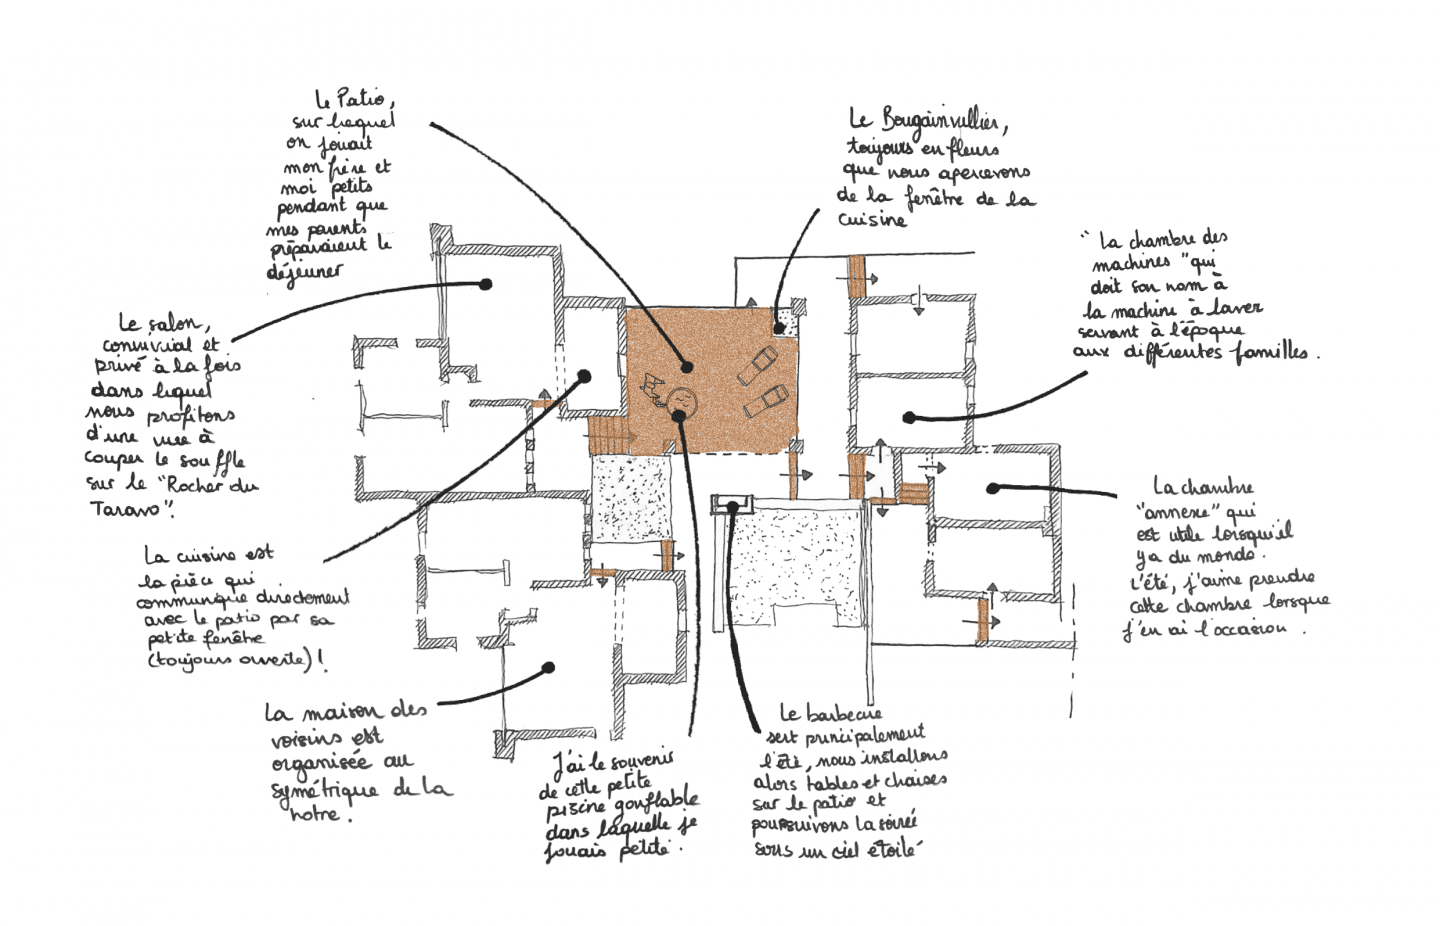 Le Patio,
sur lequel
on jouait
mon frère et
moi petits
pendant que
mes parents
préparaient le
déjeuner
Le Bougainvillier,
toujours en fleurs
que nous apercevons
de la fenêtre de la
cuisine
"La chambre des
machines" qui
doit son nom à
la machine à laver
servant à l'époque
aux différentes familles.
Le salon,
convivial et
privé à la fois
dans lequel
nous profitons
d'une vue à
couper le souffle
sur le "Rocher du
Taravo".
La chambre
"annexe" qui
est utile lorsqu'il
y a du monde.
L'été, j'aime prendre
cette chambre lorsque
j'en ai l'occasion.
La cuisine est
la pièce qui
communique directement
avec le patio par sa
petite fenêtre
(toujours ouverte)!
La maison des
voisins est
organisée au
symétrique de la
notre.
J'ai le souvenir
de cette petite
piscine gonflable
dans laquelle je
jouais petite.
Le barbecue
sert principalement
l'été, nous installons
alors tables et chaises
sur le patio et
poursuivons la soirée
sous un ciel étoilé